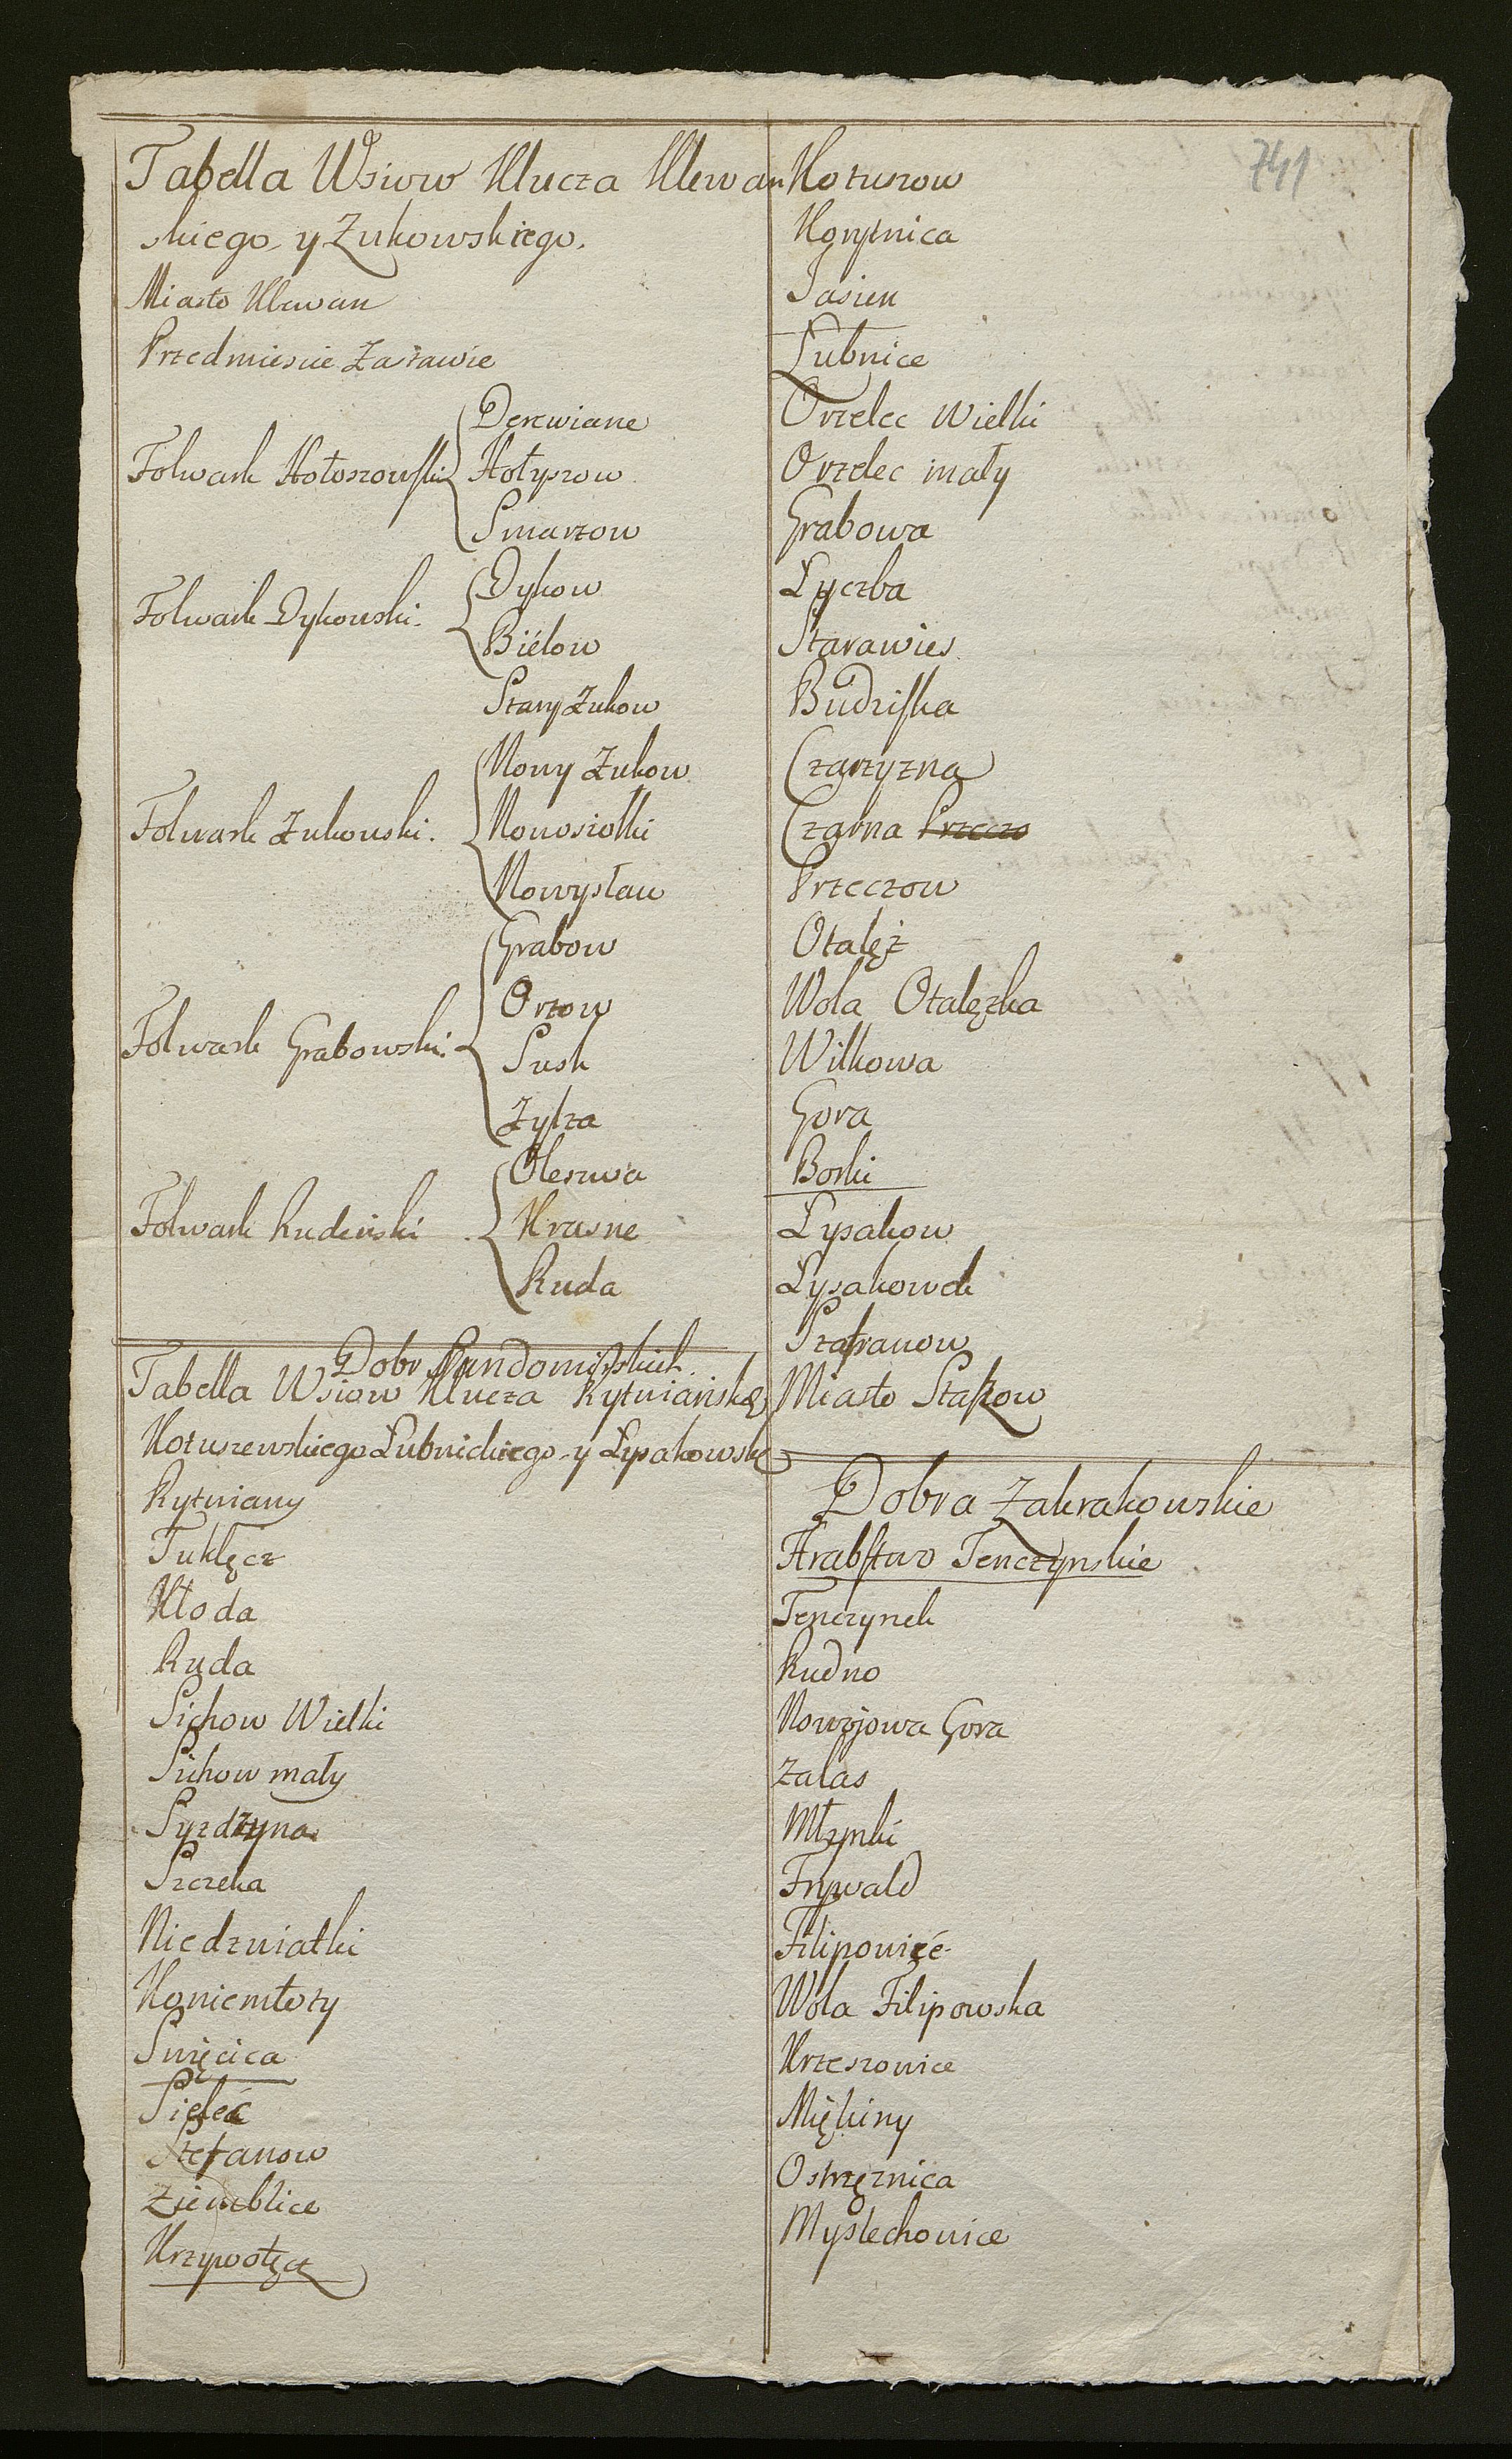 Tabella Wsiow Klucza Klewan
skiego y Zukowskiego.
Miasto Klewan
Przedmiescie Zastawie
Derewiane
Folwark Hołoszowski Hołyszow
Smarzow
Dykow
Folwark Dykowski.
Biélow
Stary Zukow
Nowy Zukow
Folwark Zukowski. Nowosiolki
Nowystaw
Grabow
Orzow
Folwark Grabowski.
Susk
Zylza
Oleszwa
Folwark Rudeński Krasne
Ruda
Dobr Sandomirskich.
Tabella Wsiow Klucza Rytwiańskg
Kotuszewskiego Łubnickiego y Łysakowskg
Rytwiany
Tuklęcz
Kłoda
Ruda
Sichow Wielki
Sichow mały
Syzdzyna
Szczeka
Niedzwiałki
Koniemłoty
Swięcica
Sieleć
Stefanow
Ziemblice
Krzywołęcz
741
Kotuszow
Korytnica
Jasien
Łubnice
Orzelec Wielki
Orzelec mały
Grabowa
Łyczba
Starawies
Budziska
Czarzyzna
Czarna Przeczo
Przeczow
Otalęż
Wola Otalęzka
Wilkowa
Gora
Borki
Łysakow
Łysakowek
Szafranow
Miasto Staszow
Dobra Zakrakowskie
Hrabstwo Tenczynskie
Tenczynek
Rudno
Nowojowa Gora
Zalas
Młynki
Frywald
Filipowicé
Wola Filipowska
Krzeszowice
Miękiny
Ostręznica
Myslechowice